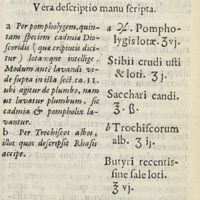 Vera descriptio manu scripta.
a Per pompholygem, quin-
tam speciem cadmia Dio-
scoridis (qua eripintis dici-
tur) lotamque intellige.
Modum autē lavandi vi-
de supra in ista sect. ca. 11.
ubi agitur de plumbo, nam
ut lavatur plumbum, sic
cadmia & pompholix la-
vantur.
b Per Trochiscos albos,
illos quos descripsit Rhasis
accipe.
a ♃. Pompho-
lygis lotæ. ʒvj.
Stibii crudi usti
& loti. ʒ j.
Sacchari candi.
ʒ. ß.
b Trochiscorum
alb. ʒ ij.
Butyri recentis-
sine sale loti.
ʒ vj.